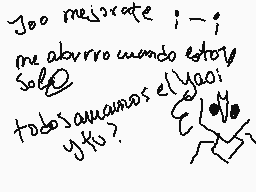 joo mejorate ;-;
me aburro cuando estoy
solo
todos amamos el yaoi
y tu?